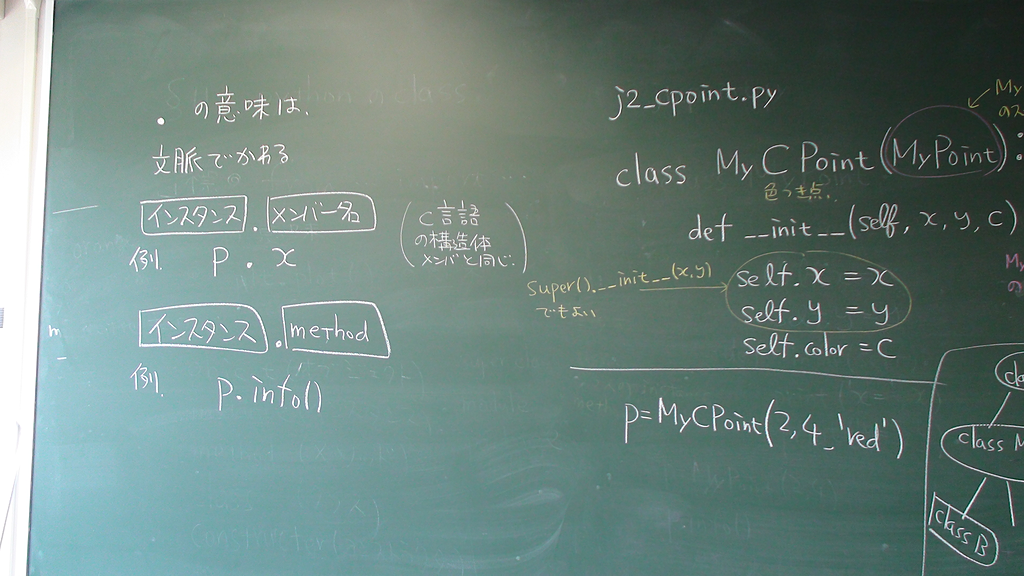 . の意味は、
文脈でかわる
インスタンス . メンバー名
(C言語
の構造体
メンバと同じ.)
例. p . x
インスタンス . method
例. p.info()
j2_cpoint.py
class MyCPoint(MyPoint)
色つき点.
def __init__(self, x, y, c)
super().__init__(x,y)
でもよい
self.x = x
self.y = y
self.color = c
p=MyCPoint(2,4,'red')
My
のス
My
の
cla
class M
class B